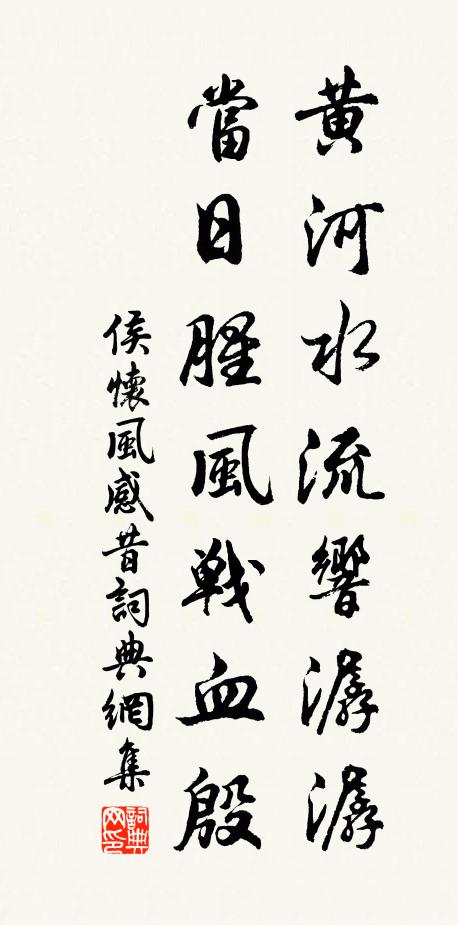 黄河水流響潺潺
當日腥風戰血殷
侯懷風感昔詞典網集
詞典網印